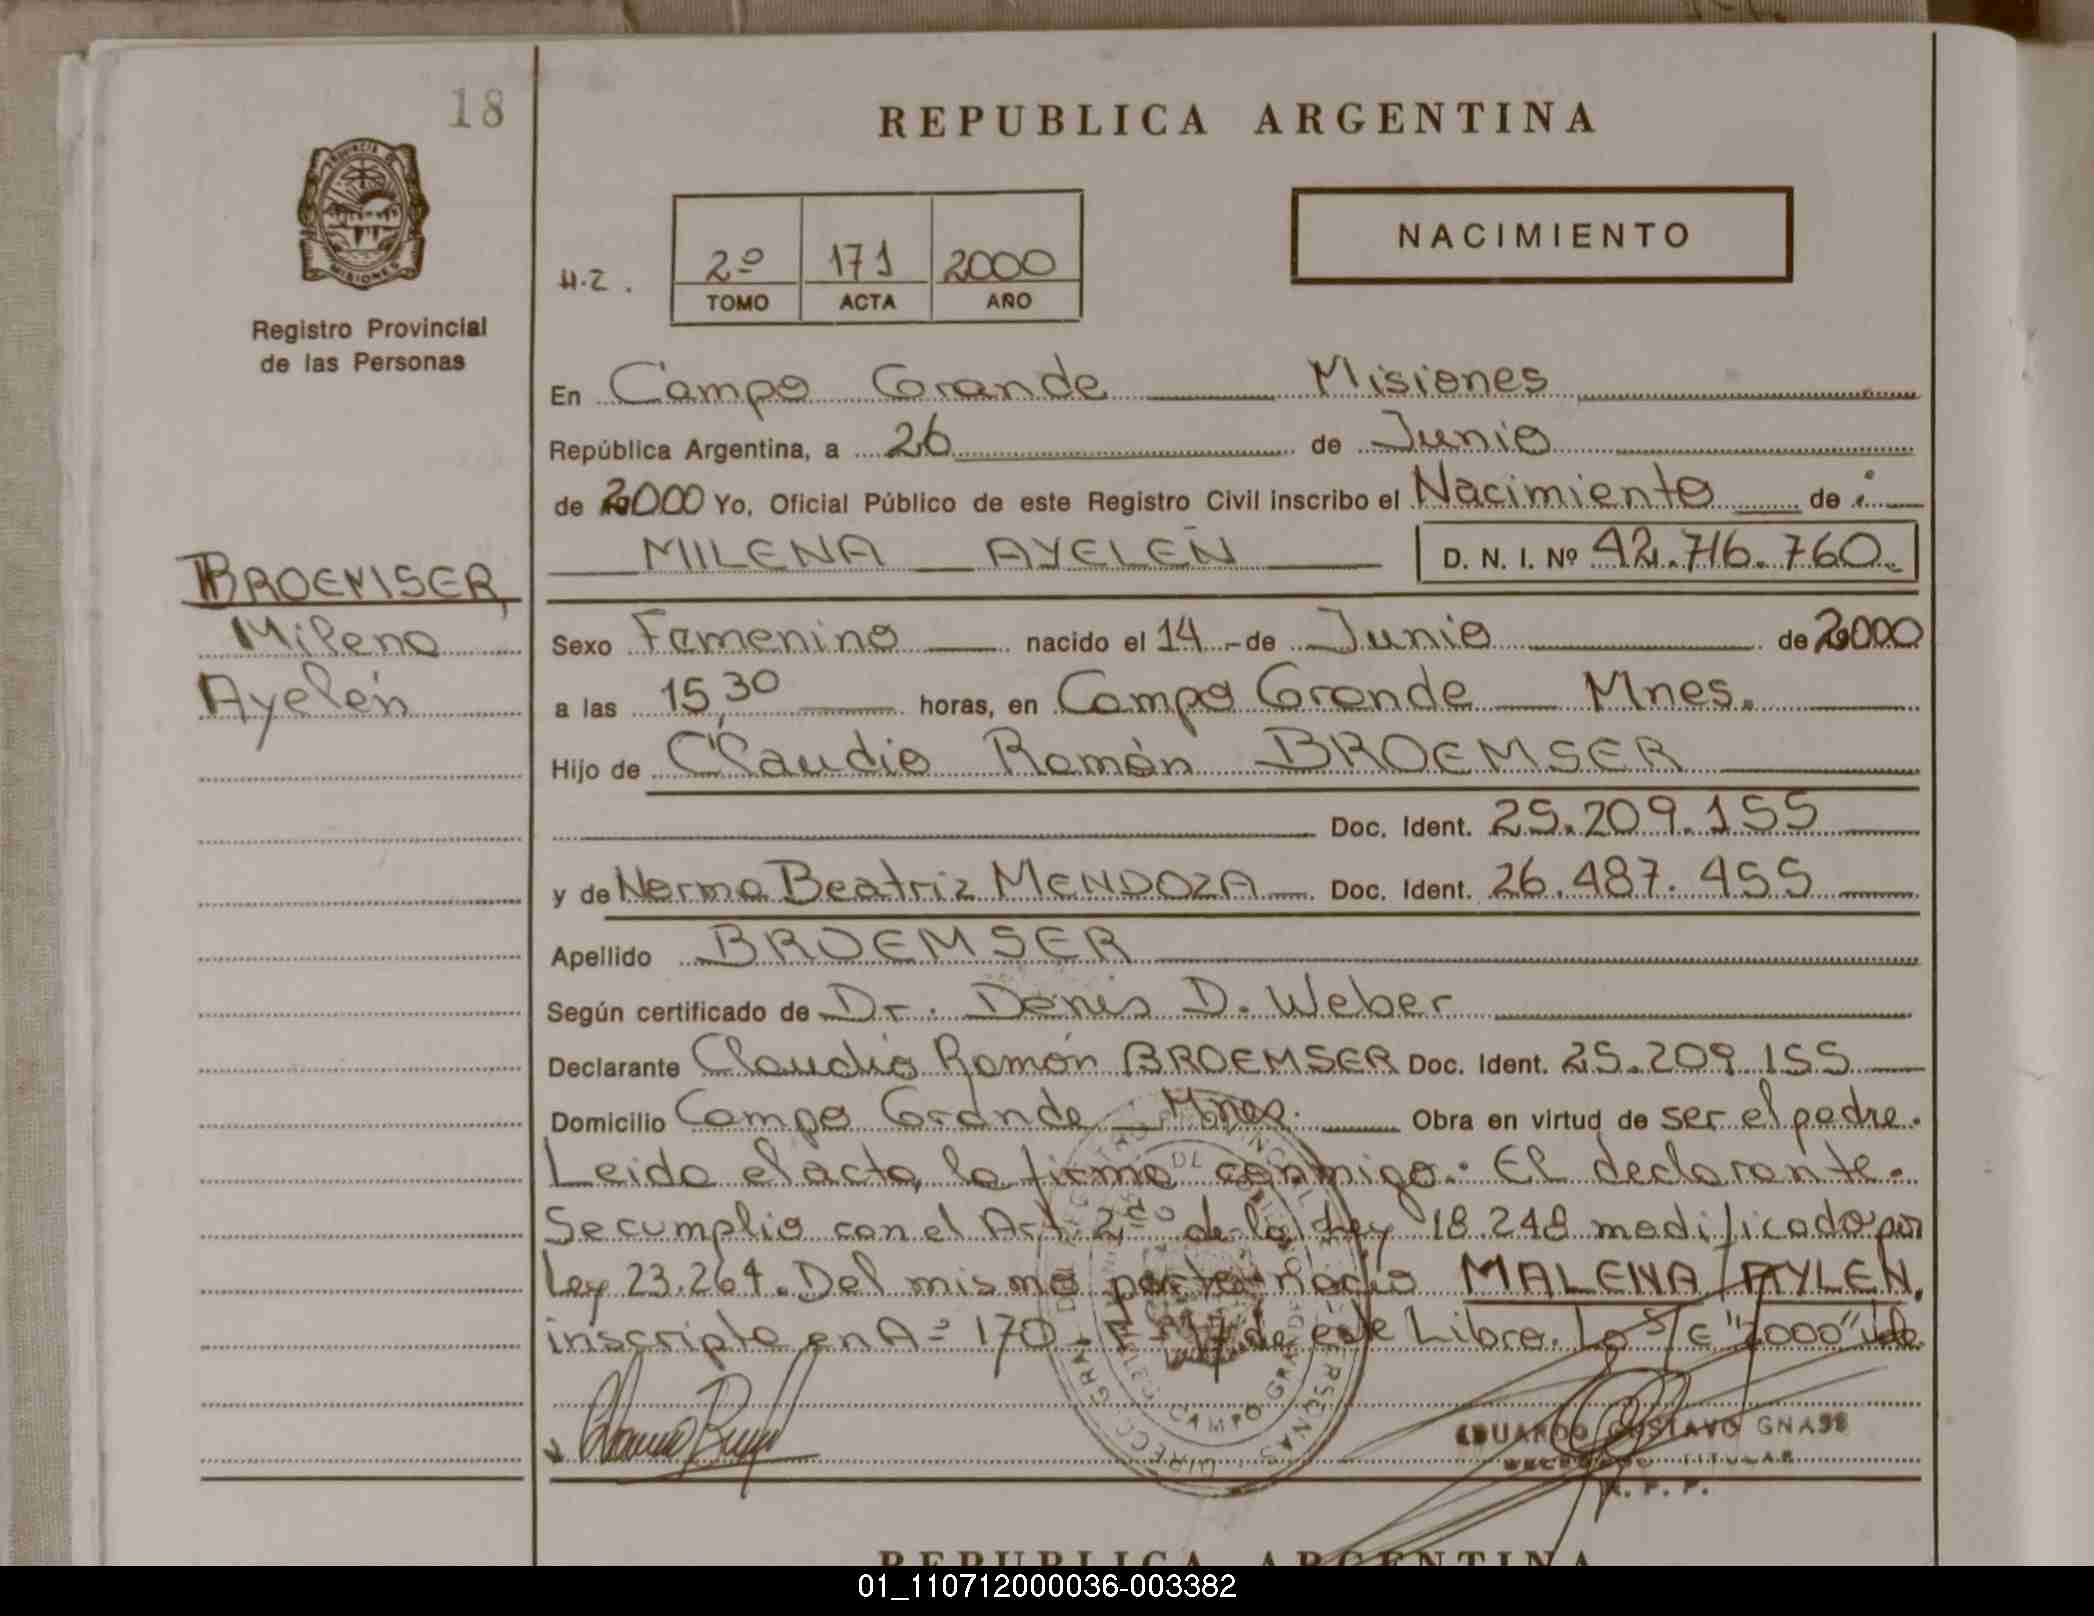 18
REPUBLICA ARGENTINA
PROVINCIA DE
MISIONES
Registro Provincial
de las Personas
H.Z.
2º 171 2000
TOMO ACTA AÑO
NACIMIENTO
En Campo Grande Misiones
República Argentina, a 26 de Junio
de 2000 Yo, Oficial Público de este Registro Civil inscribo el Nacimiento de :
MILENA AYELEN
D. N. I. Nº 42.716.760.
BROEMSER,
Milena
Ayelén
Sexo Femenino nacido el 14 de Junio de 2000
a las 15,30 horas, en Campo Grande Mnes.
Hijo de Claudio Ramón BROEMSER
Doc. Ident. 25.209.155
y de Norma Beatriz MENDOZA Doc. Ident. 26.487.455
Apellido BROEMSER
Según certificado de Dr. Denis D. Weber
Declarante Claudio Ramón BROEMSER Doc. Ident. 25.209.155
Domicilio Campo Grande Mnes. Obra en virtud de ser el padre.
Leida el acta, la firma conmigo: El declarante.
Se cumplio con el Art. 2do de la Ley 18.248 modificado por
Ley 23.264. Del mismo parto nació MALENA AYLEN,
inscripta en Aº 170 Fº 17 de este Libro. Lo S/E "2000" vale
CAMPO GRANDE
EDUARDO GUSTAVO GNASS
TITULAR
R. P. P.
REPUBLICA ARGENTINA
01_110712000036-003382